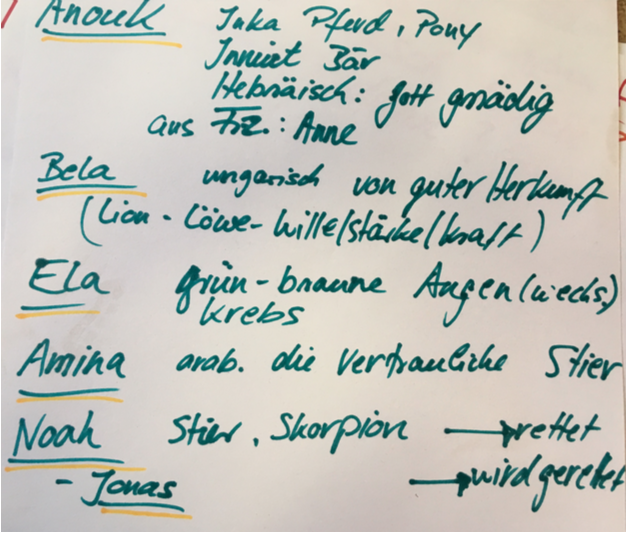 Anouk Inka Pferd, Pony
Innuit Bär
Hebräisch: Gott gnädig
aus Frz.: Anne
Bela ungarisch von guter Herkunft
(Lion - Löwe - Wille/stärke/kraft)
Ela grün-braune Augen (wechs.)
krebs
Amina arab. die vertrauliche Stier
Noah Stier, Skorpion → rettet
- Jonas → wird gerettet